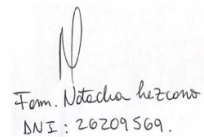 Fdm. Natacha Lezcano
DNI: 26209569.